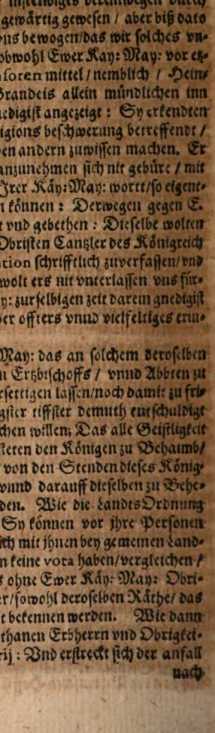 gewärtig gewesen / aber biß dato
vns bewogen/das wir solches vn-
obwohl Ewer Kay: May: vor etz-
soren mittel / nemblich / Hein-
Brandeis allein mündlichen inn
nedigist angezeigt : Sy erkendten
ligions beschwerung betreffendt /
en andern zuwissen machen. Er
anzunehmen sich nit gebüre / mit
Jrer Käy: May: wortt/so eigent-
n können : Derwegen gegen E.
t vnd gebethen : Dieselbe wolten
Obristen Cantzler des Königreich
ation schrifftlich zuverfassen/vnd
wolt ers nit vnterlassen vns für-
y: zurselbigen zeit darein gnedigist
er offters vnnd vielfeltiges erin-
May: das an solchem deroselben
n Ertzbischoffs / vnnd Abbten zu
esertigen lassen/noch damit zu fri-
gster tiffster demuth entschuldigt
chen willen; Das alle Geistligkeit
steten den Königen zu Behaimb/
von den Stenden dieses König-
vnnd darauff dieselben zu Behe-
den. Wie die LandtsOrdnung
Sy können vor jhre Personen
sich mit jhnen bey gemeinen Land-
n keine vota haben/vergleichen /
s ohne Ewer Käy: May: Obri-
er/sowohl deroselben Räthe/ das
t bekennen werden. Wie dann
thanen Erbherrn vnd Obrigkei-
rij : Vnd erstreckt sich der anfall
nach